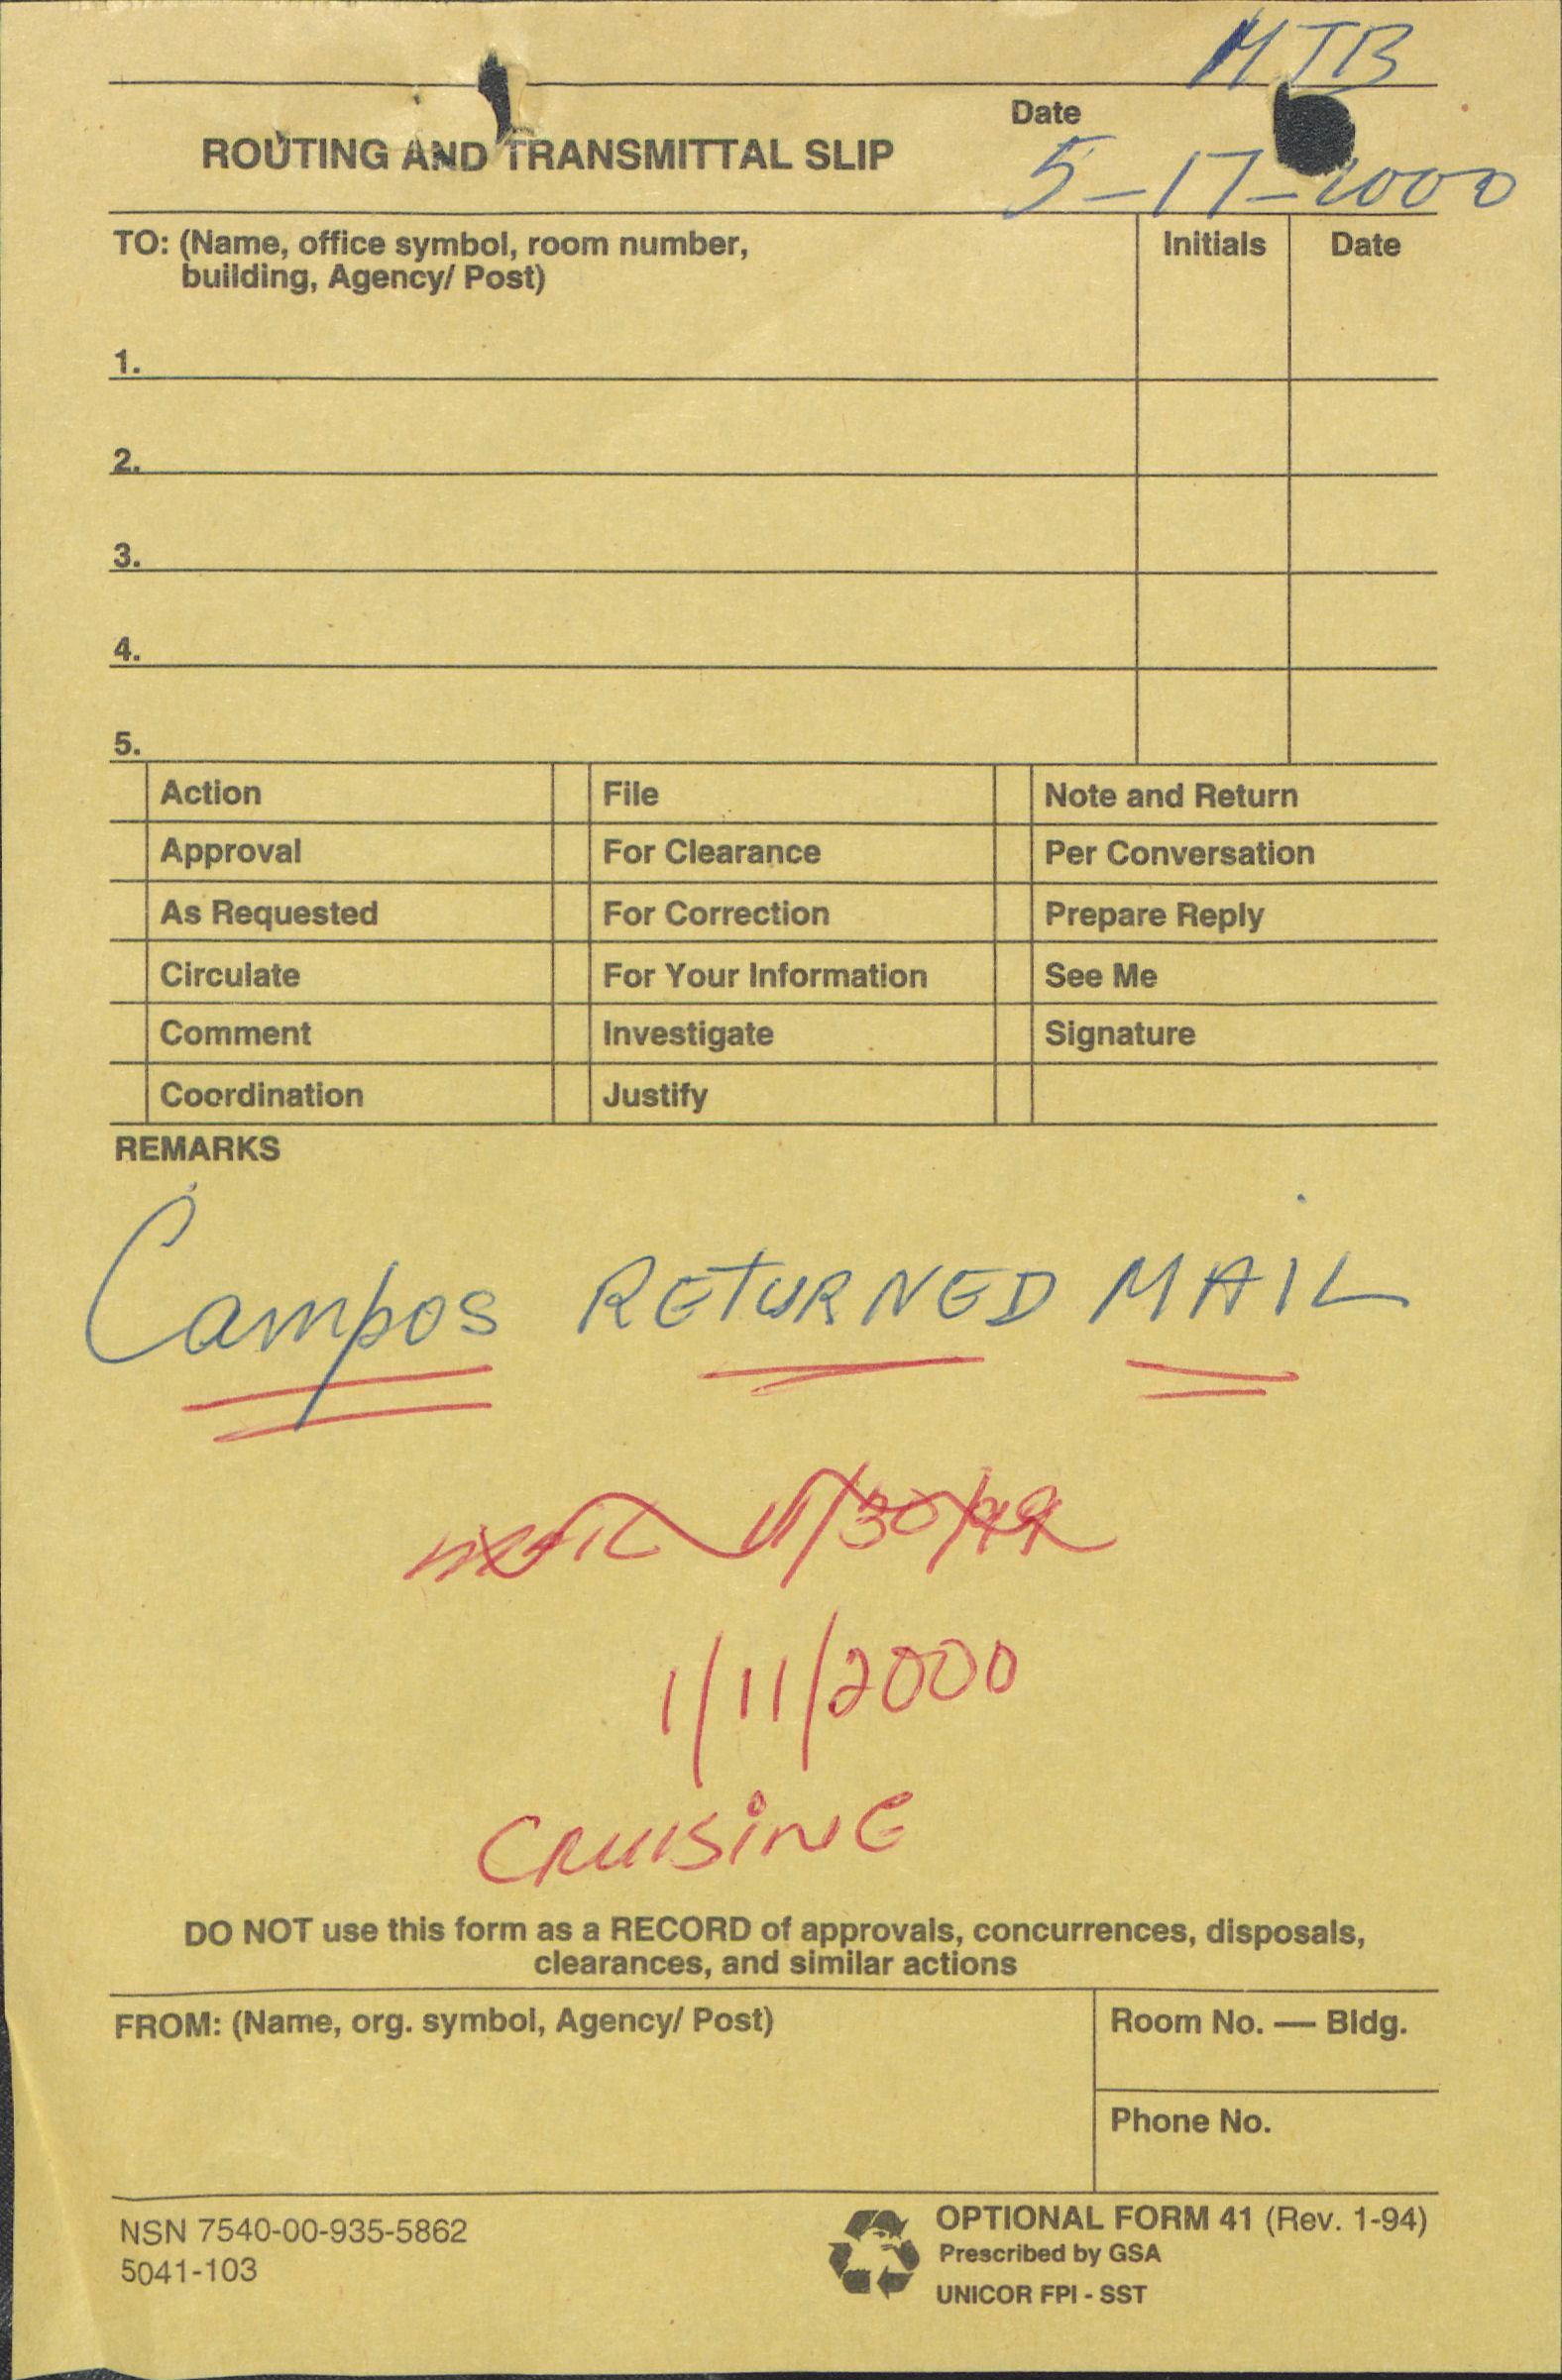 MTB
Date
ROUTING AND TRANSMITTAL SLIP
5-17-2000
TO: (Name, office symbol, room number, Initials Date
building, Agency/ Post)
1.
2.
3.
4.
5.
Action File Note and Return
Approval For Clearance Per Conversation
As Requested For Correction Prepare Reply
Circulate For Your Information See Me
Comment Investigate Signature
Coordination Justify
REMARKS
Campos RETURNED MAIL
11/30/99
1/11/2000
CRUISING
DO NOT use this form as a RECORD of approvals, concurrences, disposals,
clearances, and similar actions
FROM: (Name, org. symbol, Agency/ Post) Room No. — Bldg.
Phone No.
NSN 7540-00-935-5862 OPTIONAL FORM 41 (Rev. 1-94)
5041-103 Prescribed by GSA
UNICOR FPI - SST